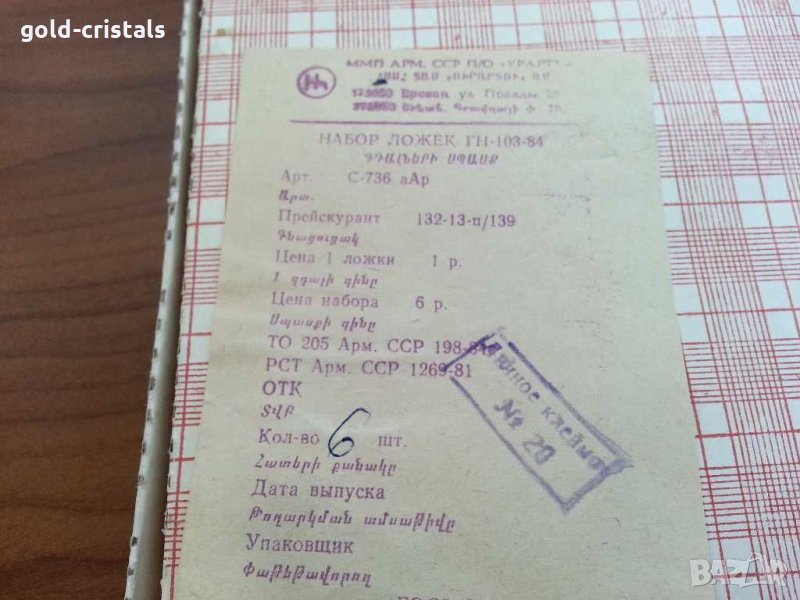 gold-cristals
ММП АРМ. ССР П/О «УРАРТУ»
Ереван ул
НАБОР ЛОЖЕК ГН-103-84
ԳԴԱԼՆԵՐԻ ՍՊԱՍՔ
Арт С-736 аАр
Արտ.
Прейскурант 132-13-п/139
Գնացուցակ
Цена 1 ложки 1 р.
1 գդալի գինը
Цена набора 6 р.
Սպասքի գինը
ТО 205 Арм. ССР 198-84
РСТ Арм. ССР 1269-81
ОТК
ՏՎԲ
Кол-во 6 шт.
Հատերի քանակը
Дата выпуска
Թողարկման ամսաթիվը
Упаковщик
Փաթեթավորող
Личное клеймо
№ 20
BAZAR.BG